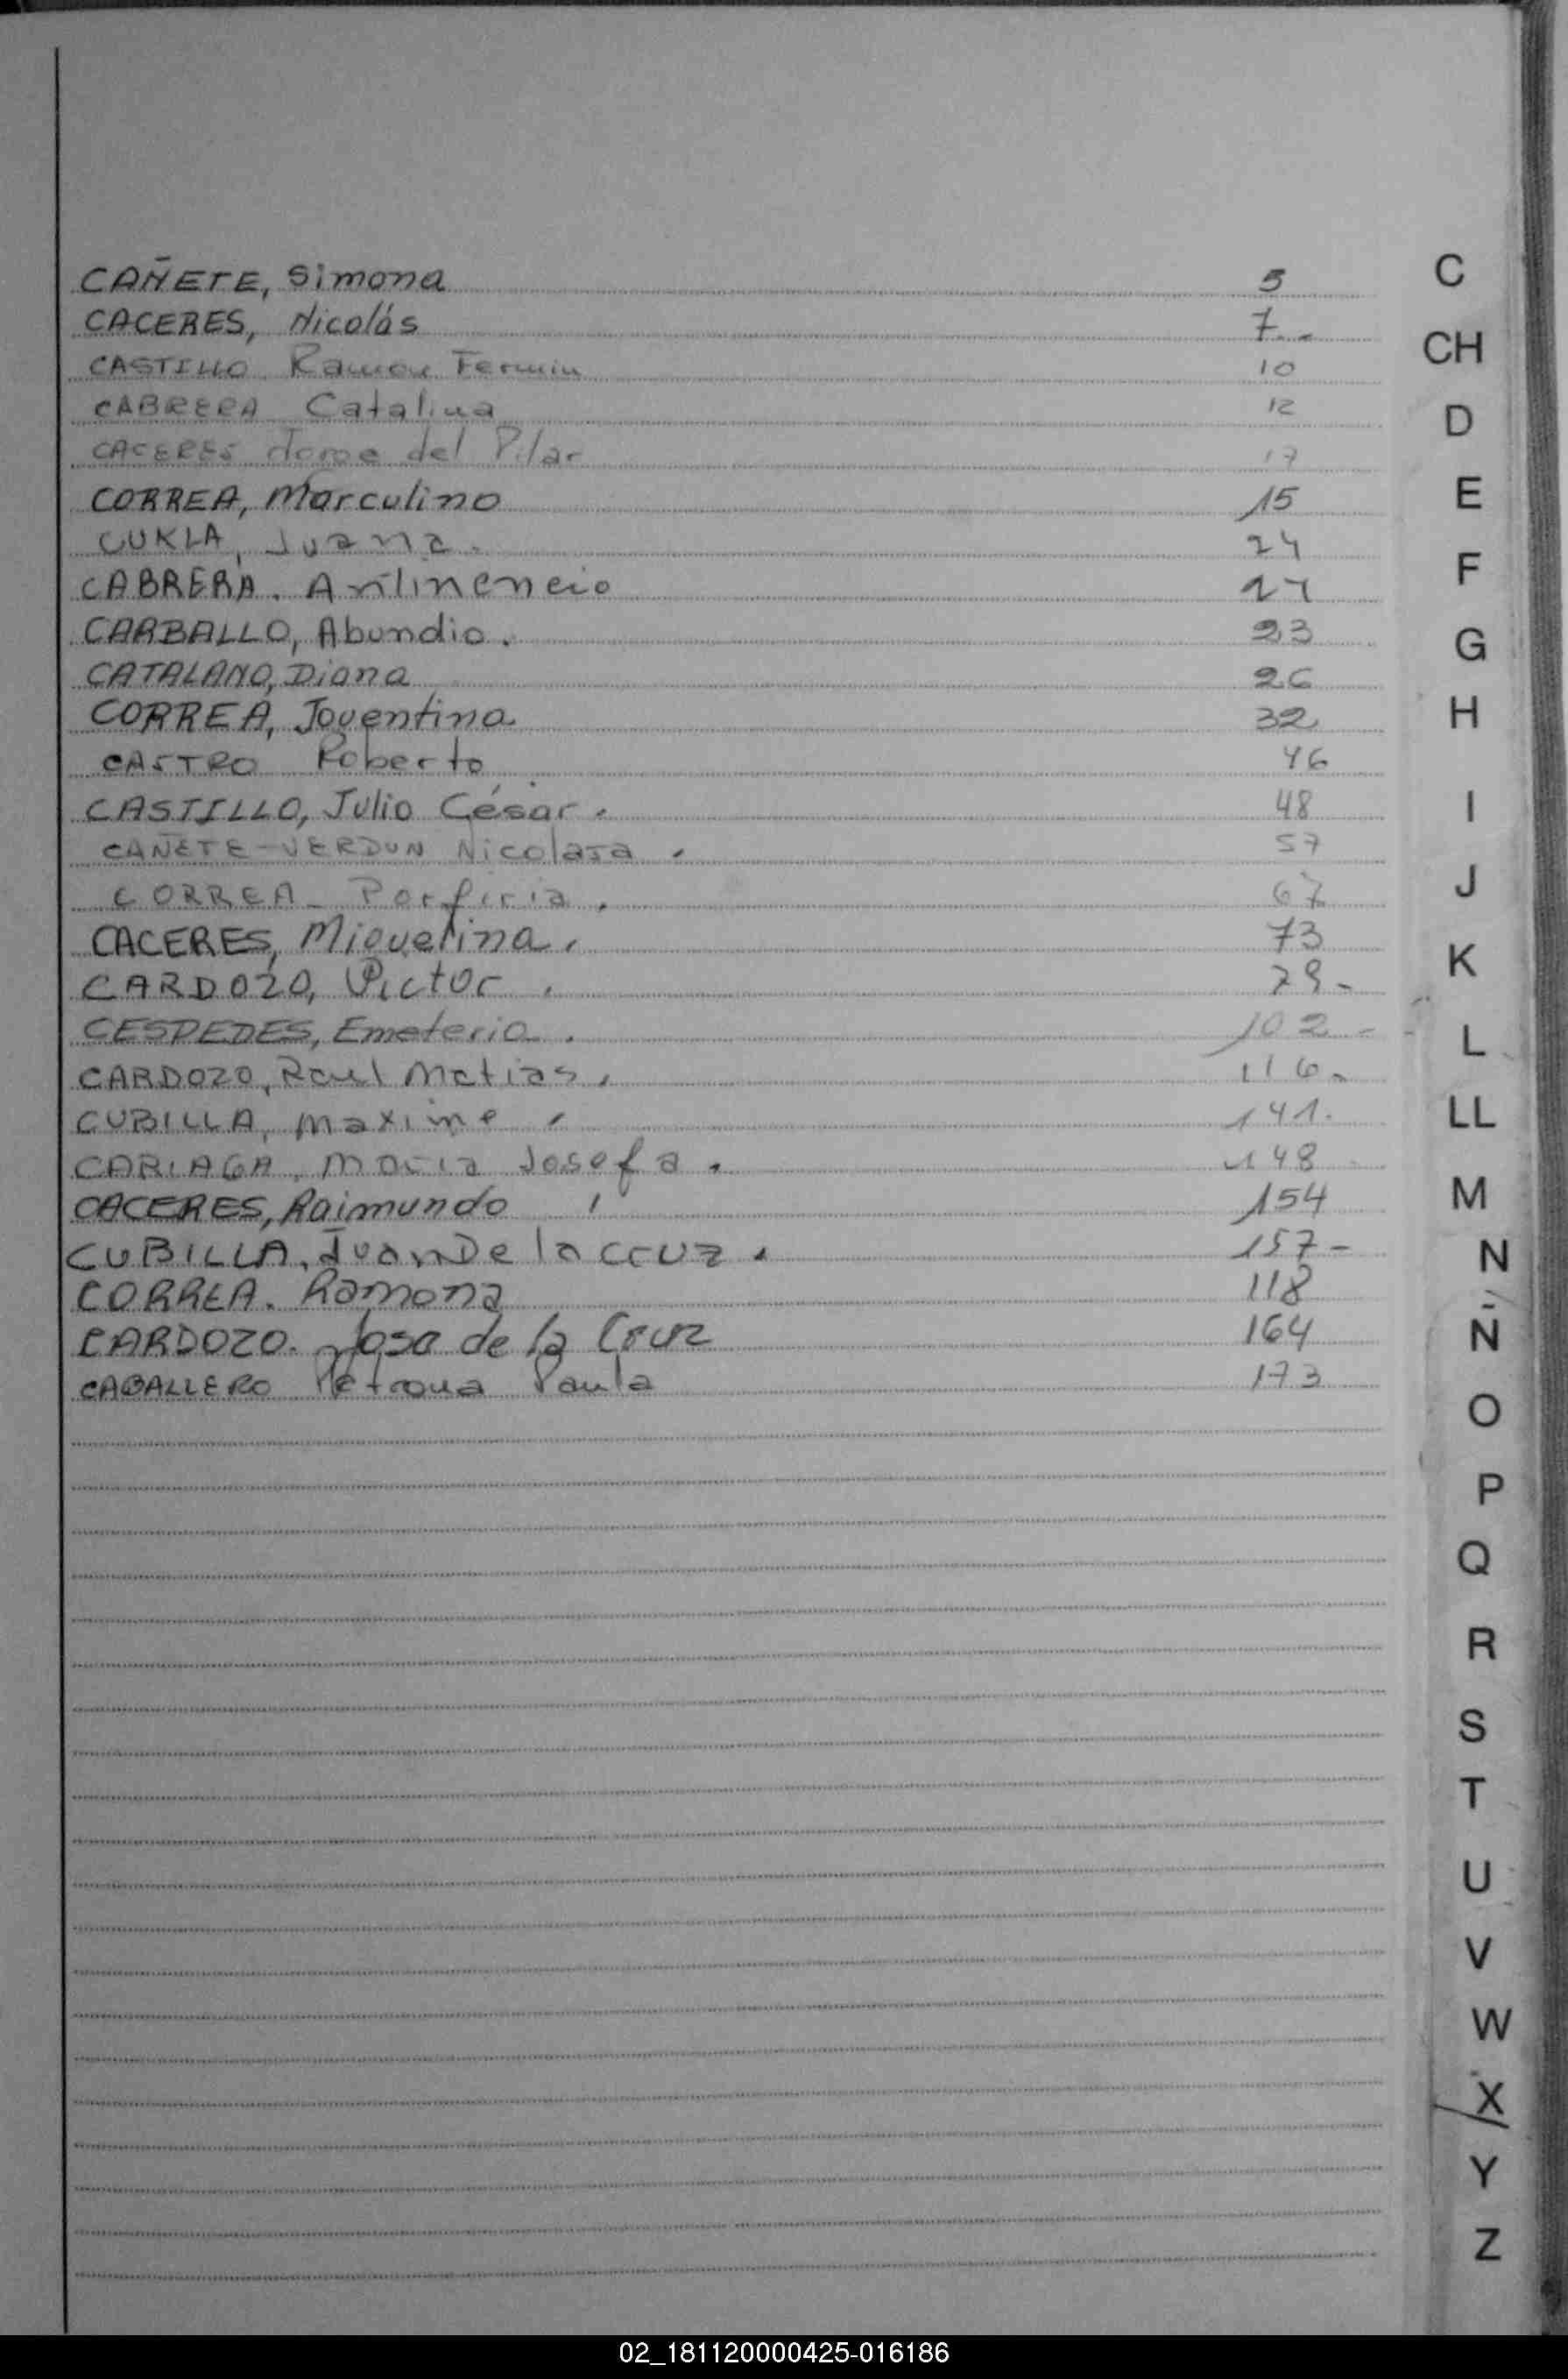 CAÑETE, Simona 5
CACERES, Nicolás 7.-
CASTILLO Ramon Fermin 10
CABRERA Catalina 12
CACERES Jorge del Pilar 17
CORREA, Marculino 15
CUKLA, Juana. 24
CABRERA. 27
CARBALLO, Abundio. 23
CATALANO, Diana 26
CORREA, Joventina. 32
CASTRO Roberto 46
CASTILLO, Julio César. 48
CAÑETE-VERDUN Nicolasa. 57
CORREA- Porfiria. 67
CACERES, Miguelina. 73
CARDOZO, Victor. 79-
CESPEDES, Emeteria. 102-
CARDOZO, Raul Matias. 116-
CUBILLA, Maxime. 141.
CARIAGA, Maria Josefa. 148
CACERES, Raimundo 154
CUBILLA, Juan De la Cruz. 157-
CORREA. Ramona 118
CARDOZO. Josa de la Cruz 164
CABALLERO Petrona Paula 173
C
CH
D
E
F
G
H
I
J
K
L
LL
M
N
Ñ
O
P
Q
R
S
T
U
V
W
X
Y
Z
02_181120000425-016186